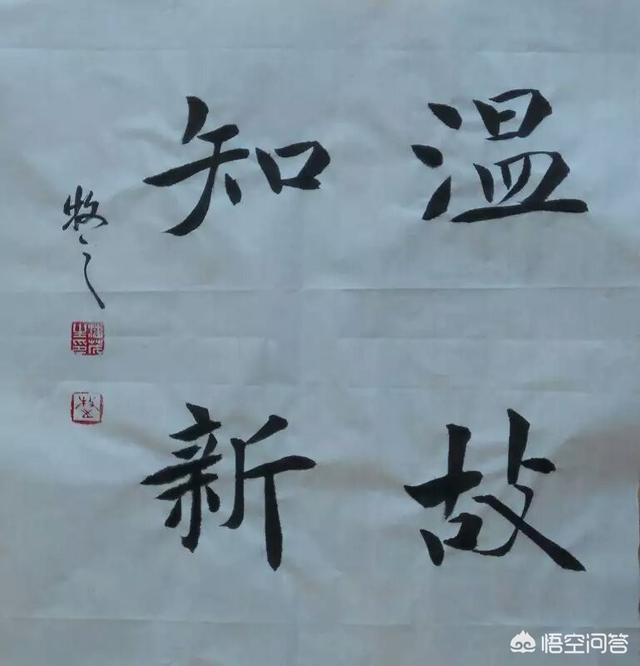 温故
知新
牧之
悟空问答